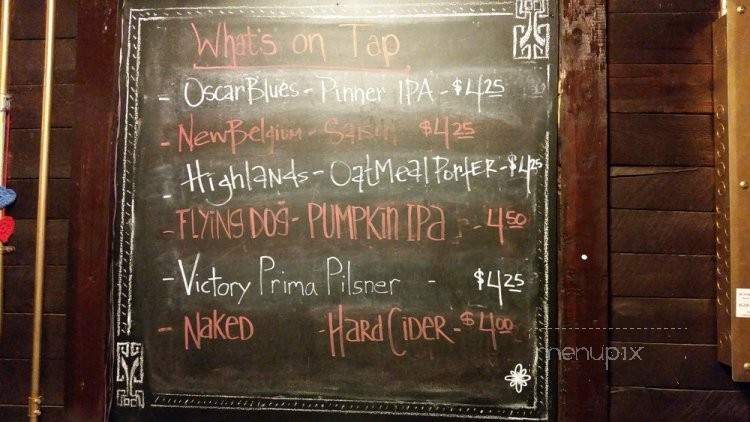 What's on Tap
- Oscar Blues - Pinner IPA - $4.25
- New Belgium - Saisin $4.25
- Highlands - OatMeal Porter - $4.25
- FLYING DOG - PUMPKIN IPA - 4.50
- Victory Prima Pilsner - $4.25
- Naked - Hard Cider - $4.00
menupix